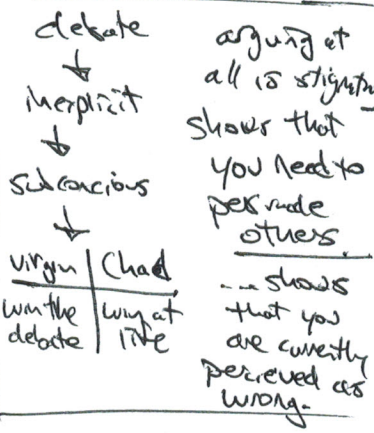 debate
↓
inexplicit
↓
subconcious
↓
virgin | Chad
win the debate | win at life
arguing at
all is
shows that
you need to
persuade
others.
...shows
that you
are currently
percieved as
wrong.